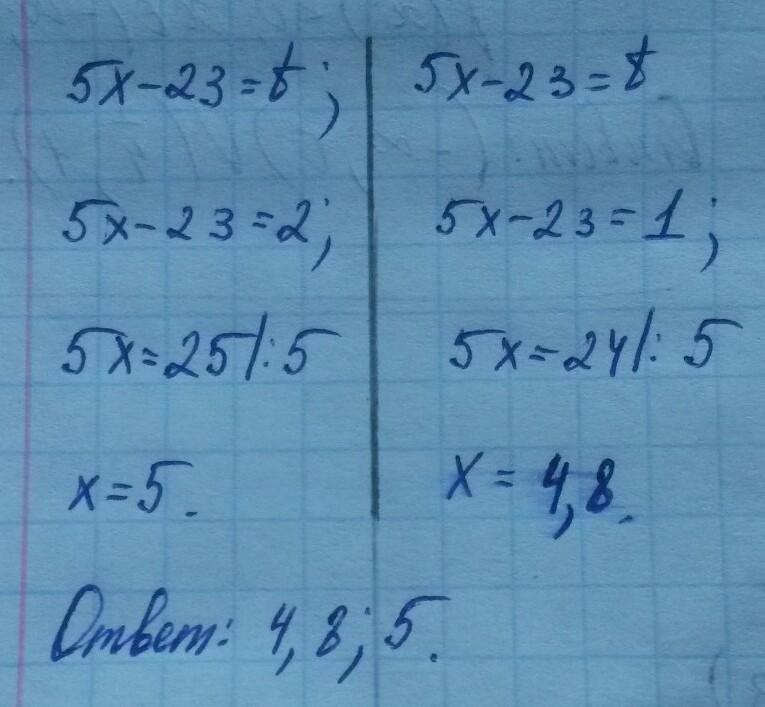 5x-23=t;
5x-23=2;
5x=25/:5
x=5.
5x-23=t
5x-23=1;
5x=24/:5
x=4,8.
Ответ: 4,8; 5.